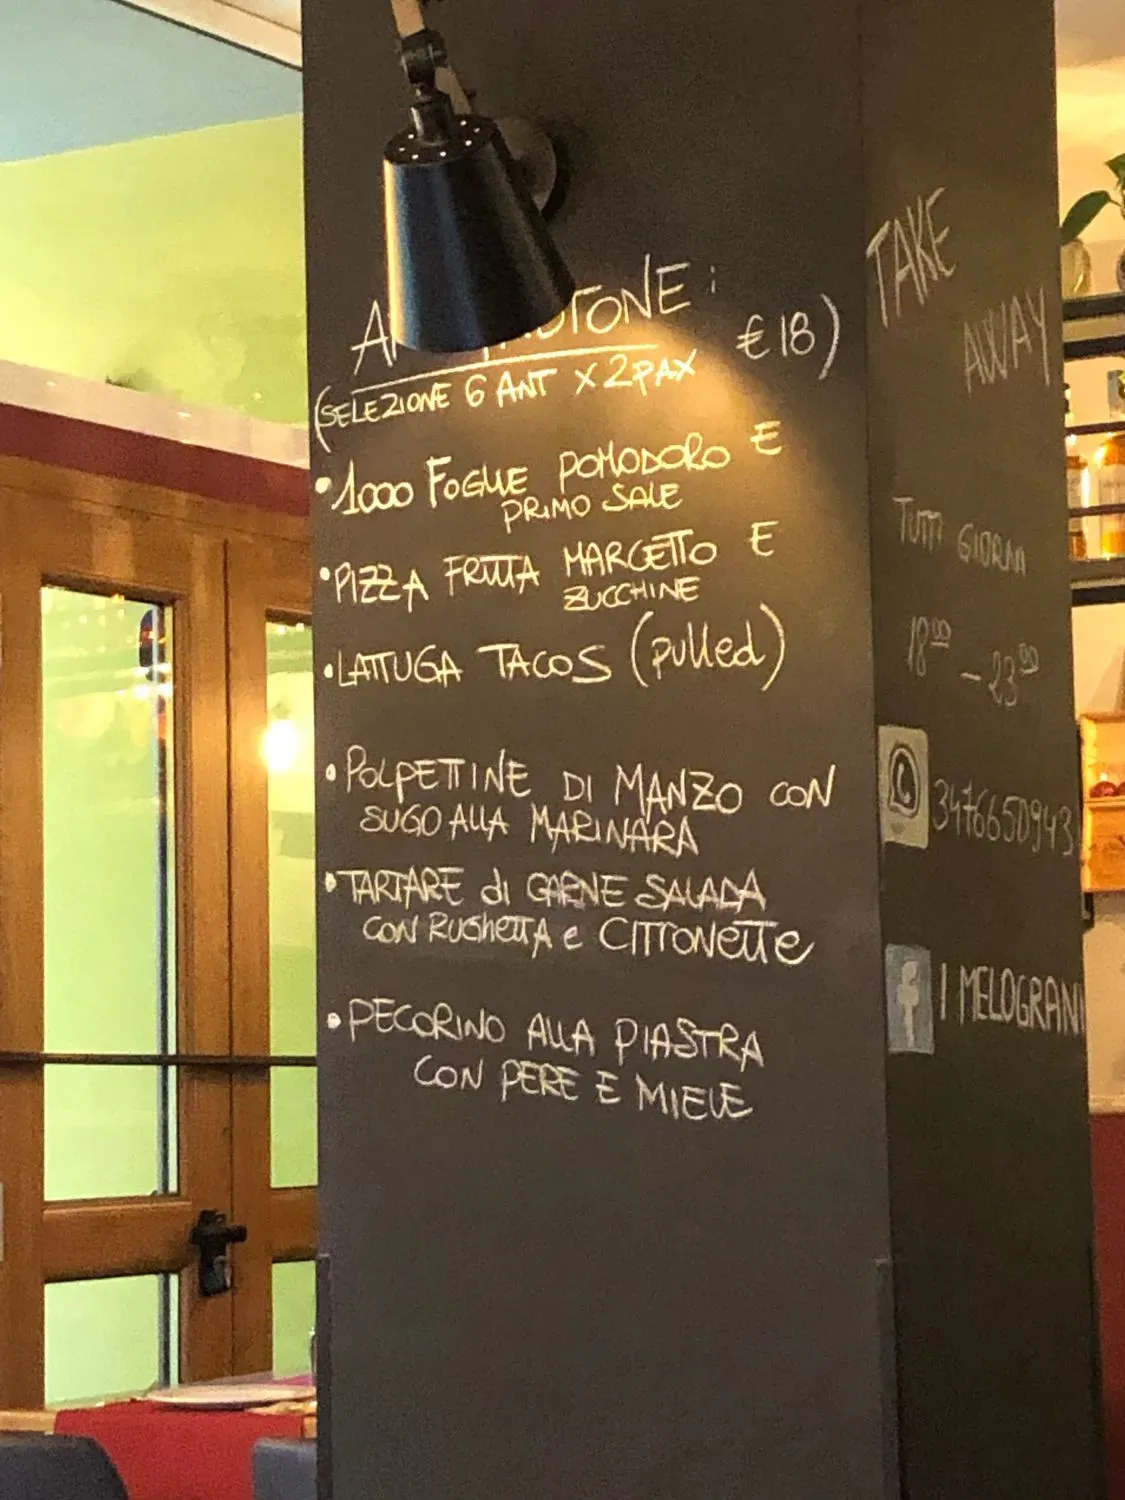 (SELEZIONE 6 ANT X 2 PAX € 18)
• 1000 FOGLIE POMODORO E
PRIMO SALE
• PIZZA FRITTA MARCETTO E
ZUCCHINE
• LATTUGA TACOS (pulled)
• POLPETTINE DI MANZO CON
SUGO ALLA MARINARA
• TARTARE di CARNE SALADA
CON RUGHETTA e CITRONETTE
• PECORINO ALLA PIASTRA
CON PERE E MIELE
TAKE
AWAY
TUTTI GIORNI
18 00 - 23 00
3476650943
f I MELOGRANI